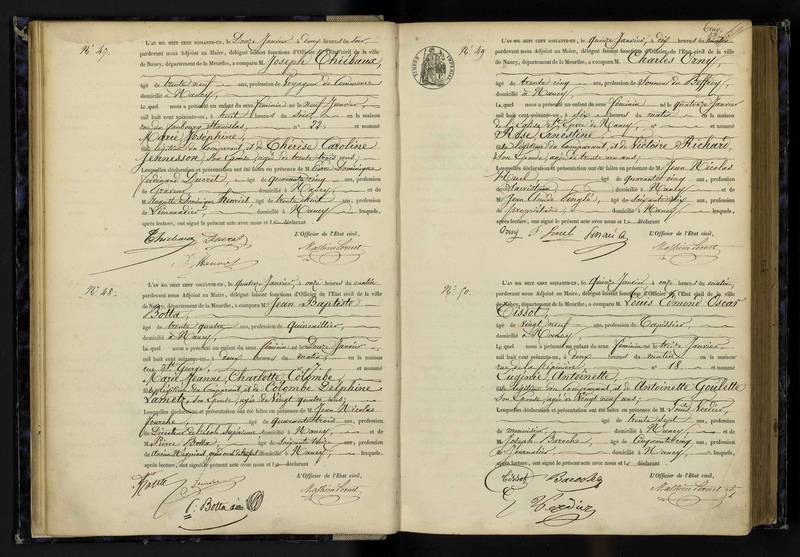 N° 47.
L'AN MIL HUIT CENT SOIXANTE-UN, le Douze Janvier à deux heures du soir
pardevant nous Adjoint au Maire, délégué faisant fonctions d'Officier de l'Etat civil de la ville
de Nancy, département de la Meurthe, a comparu M. Joseph Thiébaux,
âgé de trente neuf ans, profession de Voyageur de Commerce
domicilié à Nancy
Lequel nous a présenté un enfant du sexe féminin né le Neuf Janvier
mil huit cent soixante-un, à huit heures du soir en la maison
rue du faubourg Stanislas n° 22. et nommé
Marie Joséphine
légitime du Comparant, et de Thérèse Caroline
Jennesson, Son Epouse, âgée de trente trois ans;
Lesquelles déclaration et présentation ont été faites en présence de M. Dominique
Ferdinand Ducret âgé de quarante cinq ans, profession
de Graveur domicilié à Nancy et de
M. Dominique Henriet âgé de trente huit ans, profession
de Limonadier domicilié à Nancy lesquels,
après lecture, ont signé le présent acte avec nous et le déclarant
L'Officier de l'Etat civil,
Thiébaux Ducret
Henriet
N° 48.
L'AN MIL HUIT CENT SOIXANTE-UN, le Quatorze Janvier, à onze heures du matin
pardevant nous Adjoint au Maire, délégué faisant fonctions d'Officier de l'Etat civil de la ville
de Nancy, département de la Meurthe, a comparu M. Jean Baptiste
Botta,
âgé de trente quatre ans, profession de Quincaillier,
domicilié à Nancy
Lequel nous a présenté un enfant du sexe féminin né le Douze Janvier
mil huit cent soixante-un, à deux heures du matin, en la maison
rue St George, n° et nommé
Marie Jeanne Charlotte Colombe,
légitime du Comparant et de Colombe Delphine
Lametz, Son Epouse, âgée de Vingt quatre ans;
Lesquelles déclaration et présentation ont été faites en présence de M. Jean Nicolas
âgé de quarante trois ans, profession
de Directeur de l'école Supérieure domicilié à Nancy, et de
M. Pierre Botta âgé de soixante treize ans, profession
domicilié à Nancy lesquels,
après lecture, ont signé le présent acte avec nous et le déclarant
L'Officier de l'Etat civil,
Botta
N° 49
L'AN MIL HUIT CENT SOIXANTE-UN, le quinze Janvier, à dix heures du matin
pardevant nous Adjoint au Maire, délégué faisant fonctions d'Officier de l'Etat civil de la ville
de Nancy, département de la Meurthe, a comparu M. Charles Orny,
âgé de trente cinq ans, profession de Sonneur du Beffroy,
domicilié à Nancy
Lequel nous a présenté un enfant du sexe féminin né le quatorze Janvier
mil huit cent soixante-un, à six heures du matin en la maison
de l'Eglise St Epvre de Nancy, n° et nommé
Rose Ernestine
légitime du Comparant, et de Victoire Richard,
Son Epouse, âgée de trente un ans;
Lesquelles déclaration et présentation ont été faites en présence de M. Jean Nicolas
âgé de quarante cinq ans, profession
de Sacristain domicilié à Nancy et de
M. Jean Claude âgé de soixante six ans, profession
de propriétaire domicilié à Nancy lesquels,
après lecture, ont signé le présent acte avec nous et le déclarant
L'Officier de l'Etat civil,
Orny
N° 50.
L'AN MIL HUIT CENT SOIXANTE-UN, le Quinze Janvier à onze heures du matin,
pardevant nous Adjoint au Maire, délégué faisant fonctions d'Officier de l'Etat civil de la ville
de Nancy, département de la Meurthe, a comparu M. Louis Edmond Oscar
Tissot,
âgé de Vingt neuf ans, profession de Tapissier,
domicilié à Nancy
Lequel nous a présenté un enfant du sexe féminin né le treize Janvier
mil huit cent soixante-un, à deux heures du matin en la maison
rue de la Pépinière, n° 18 et nommé
Eugénie Antoinette
légitime du Comparant et de Antoinette Goulette
Son Epouse, âgée de Vingt neuf ans;
Lesquelles déclaration et présentation ont été faites en présence de M. Louis Verdier,
âgé de trente sept ans, profession
de menuisier domicilié à Nancy et de
M. Joseph âgé de Cinquante cinq ans, profession
de Journalier domicilié à Nancy lesquels,
après lecture, ont signé le présent acte avec nous et le déclarant
L'Officier de l'Etat civil,
Tissot
Verdier